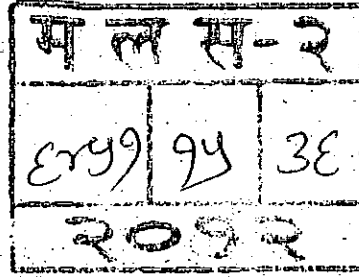 म ल स-२
६४५१ १५ ३६
२०१२